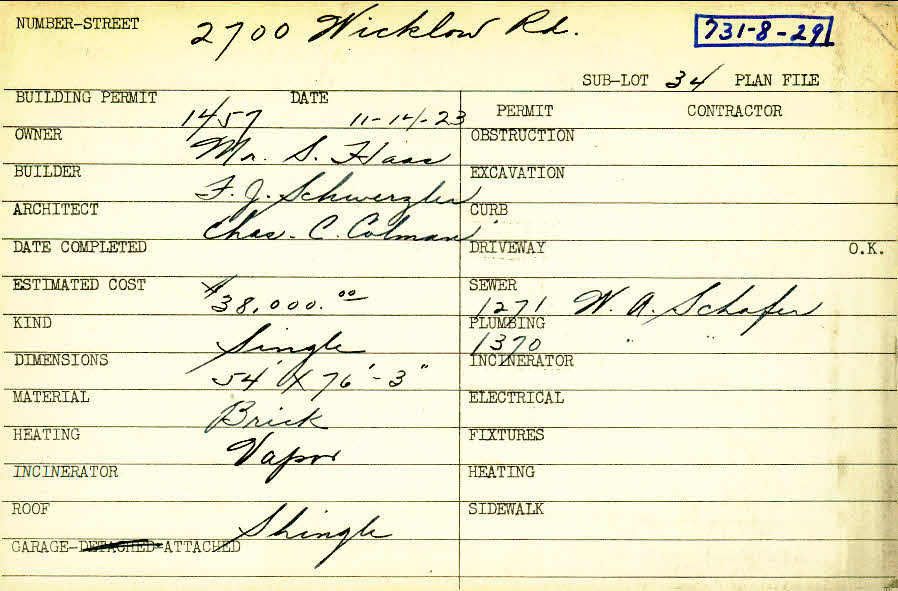 NUMBER-STREET 2700 Wicklow Rd. 731-8-29
SUB-LOT 34 PLAN FILE
BUILDING PERMIT 1457 DATE 11-14-23
PERMIT CONTRACTOR
OWNER Mr. S. Haas
OBSTRUCTION
BUILDER F. J. Schwerzler
EXCAVATION
ARCHITECT Chas. C. Colman
CURB
DATE COMPLETED
DRIVEWAY O.K.
ESTIMATED COST $38,000.00
SEWER 1271 W. A. Schafer
KIND Single
PLUMBING 1370 " "
DIMENSIONS 54' X 76'-3"
INCINERATOR
MATERIAL Brick
ELECTRICAL
HEATING Vapor
FIXTURES
INCINERATOR
HEATING
ROOF Shingle
SIDEWALK
GARAGE-DETACHED-ATTACHED